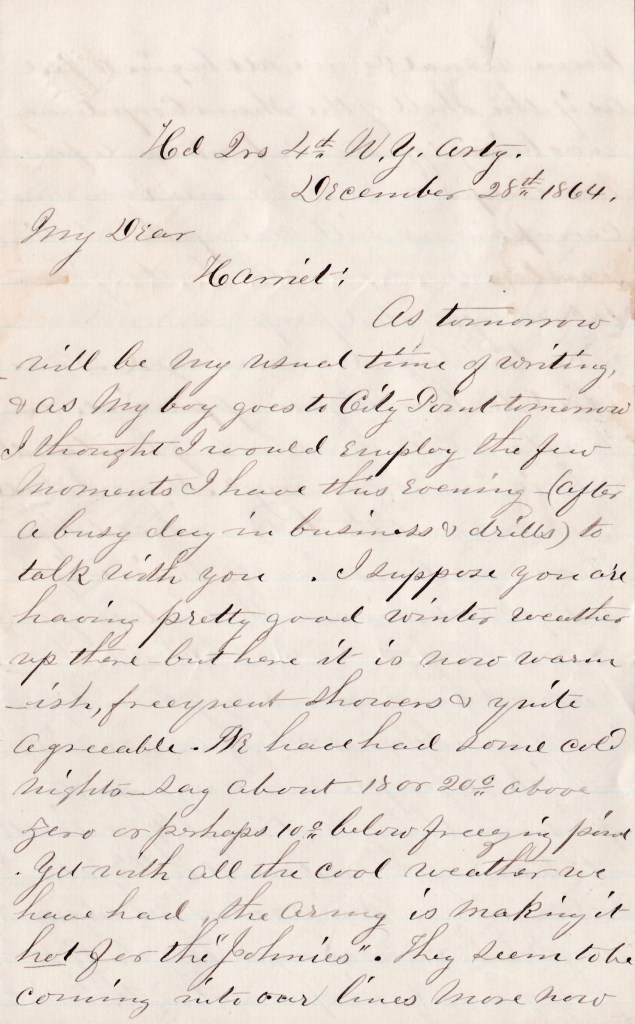 Hd Qrs 4th N.Y. Arty.
December 28th 1864.
My Dear
Harriet;
As tomorrow
will be my usual time of writing,
& as my boy goes to City Point tomorrow
I thought I would employ the few
moments I have this evening - (after
a busy day in business & drills) to
talk with you . I suppose you are
having pretty good winter weather
up there - but here it is now warm
-ish, freequent showers & quite
agreeable. We have had some cold
nights - say about 18 or 20° above
zero or perhaps 10° below freezing point
. Yet with all the cool weather we
have had, the army is making it
hot for the "Johnies". They seem to be
coming into our lines more now